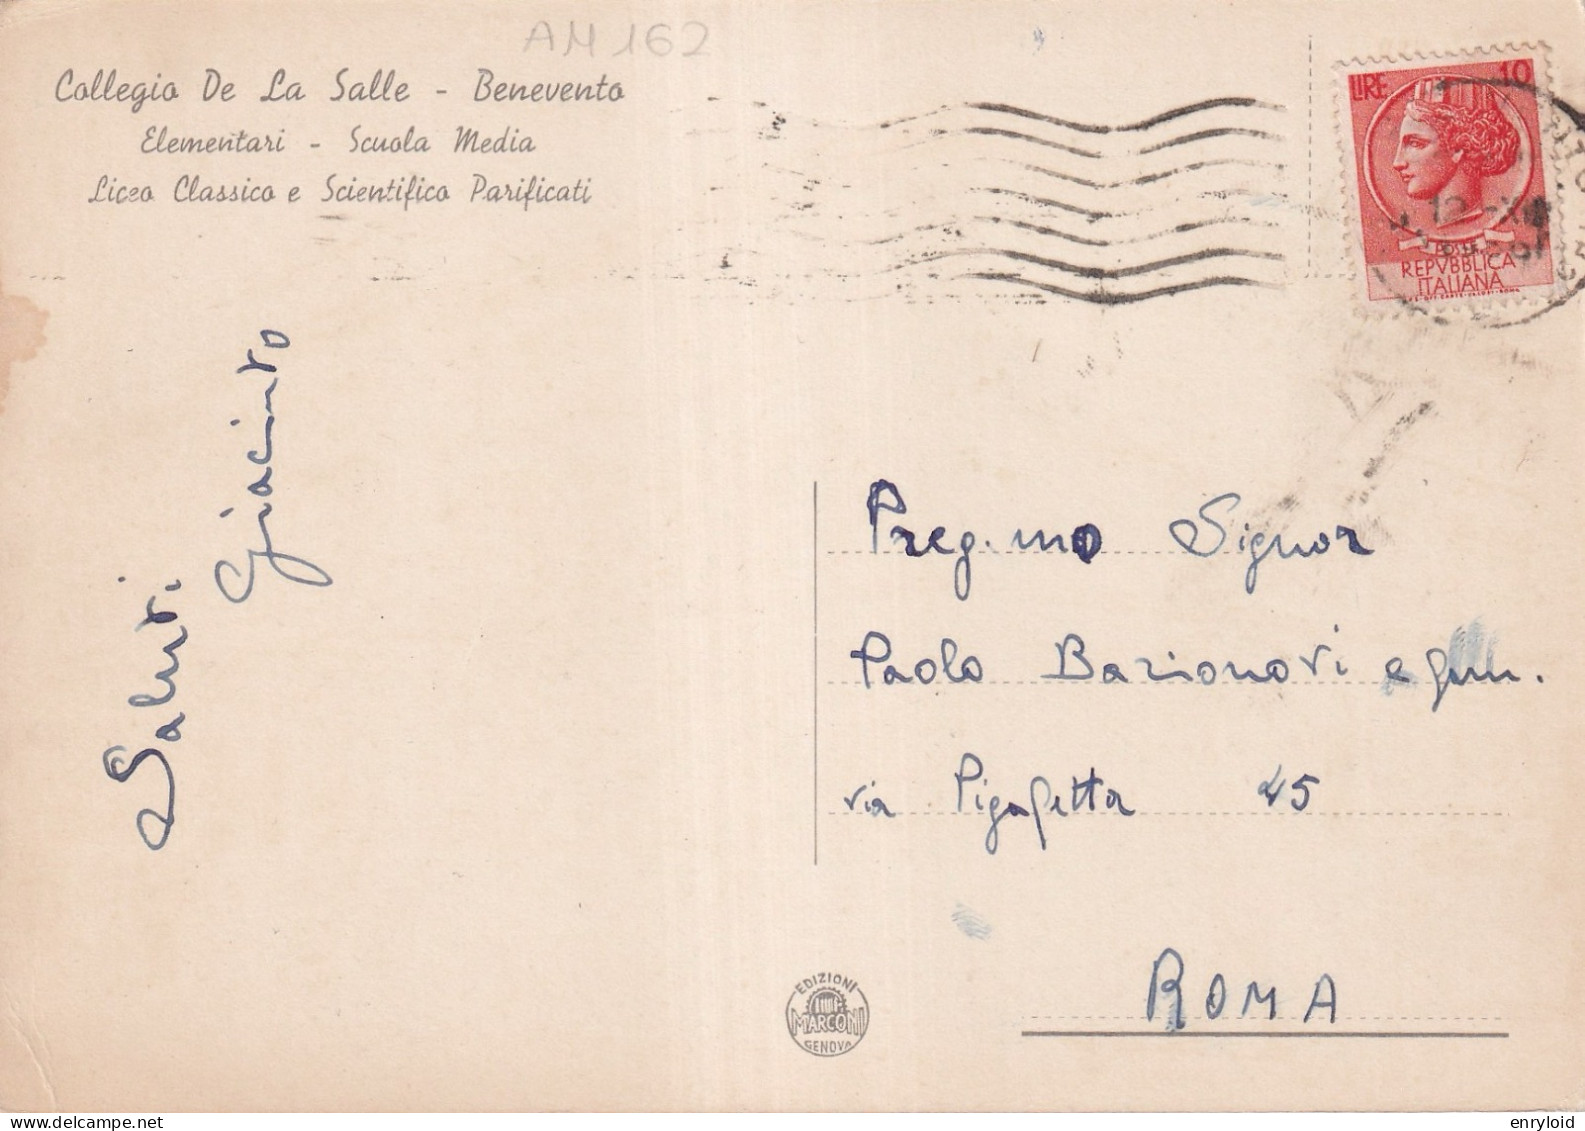 AM 162
Collegio De La Salle - Benevento
Elementari - Scuola Media
Liceo Classico e Scientifico Parificati
LIRE 10
12 - XII
POSTE
REPVBBLICA
ITALIANA
Saluti
Giacinto
Preg.mo Signor
Paolo Bazionori e fam.
via Pigafetta 45
ROMA
EDIZIONI
MARCONI
GENOVA
delcampe.net
enryloid